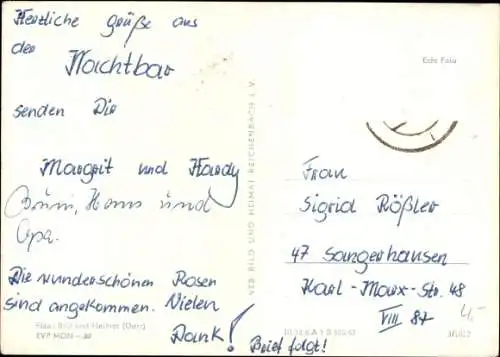 Herzliche Grüße aus
der
Nachtbar
senden Dir
Margit und Hardy
Hans und
Opa.
Die wunderschönen Rosen
sind angekommen. Vielen
Dank!
Brief folgt!
Foto: Bild und Heimat
EVP MDN
VEB BILD UND HEIMAT REICHENBACH i. V.
Echt Foto
Frau
Sigrid Rößler
47 Sangerhausen
Karl-Marx-Str. 48
VIII 87
4,-